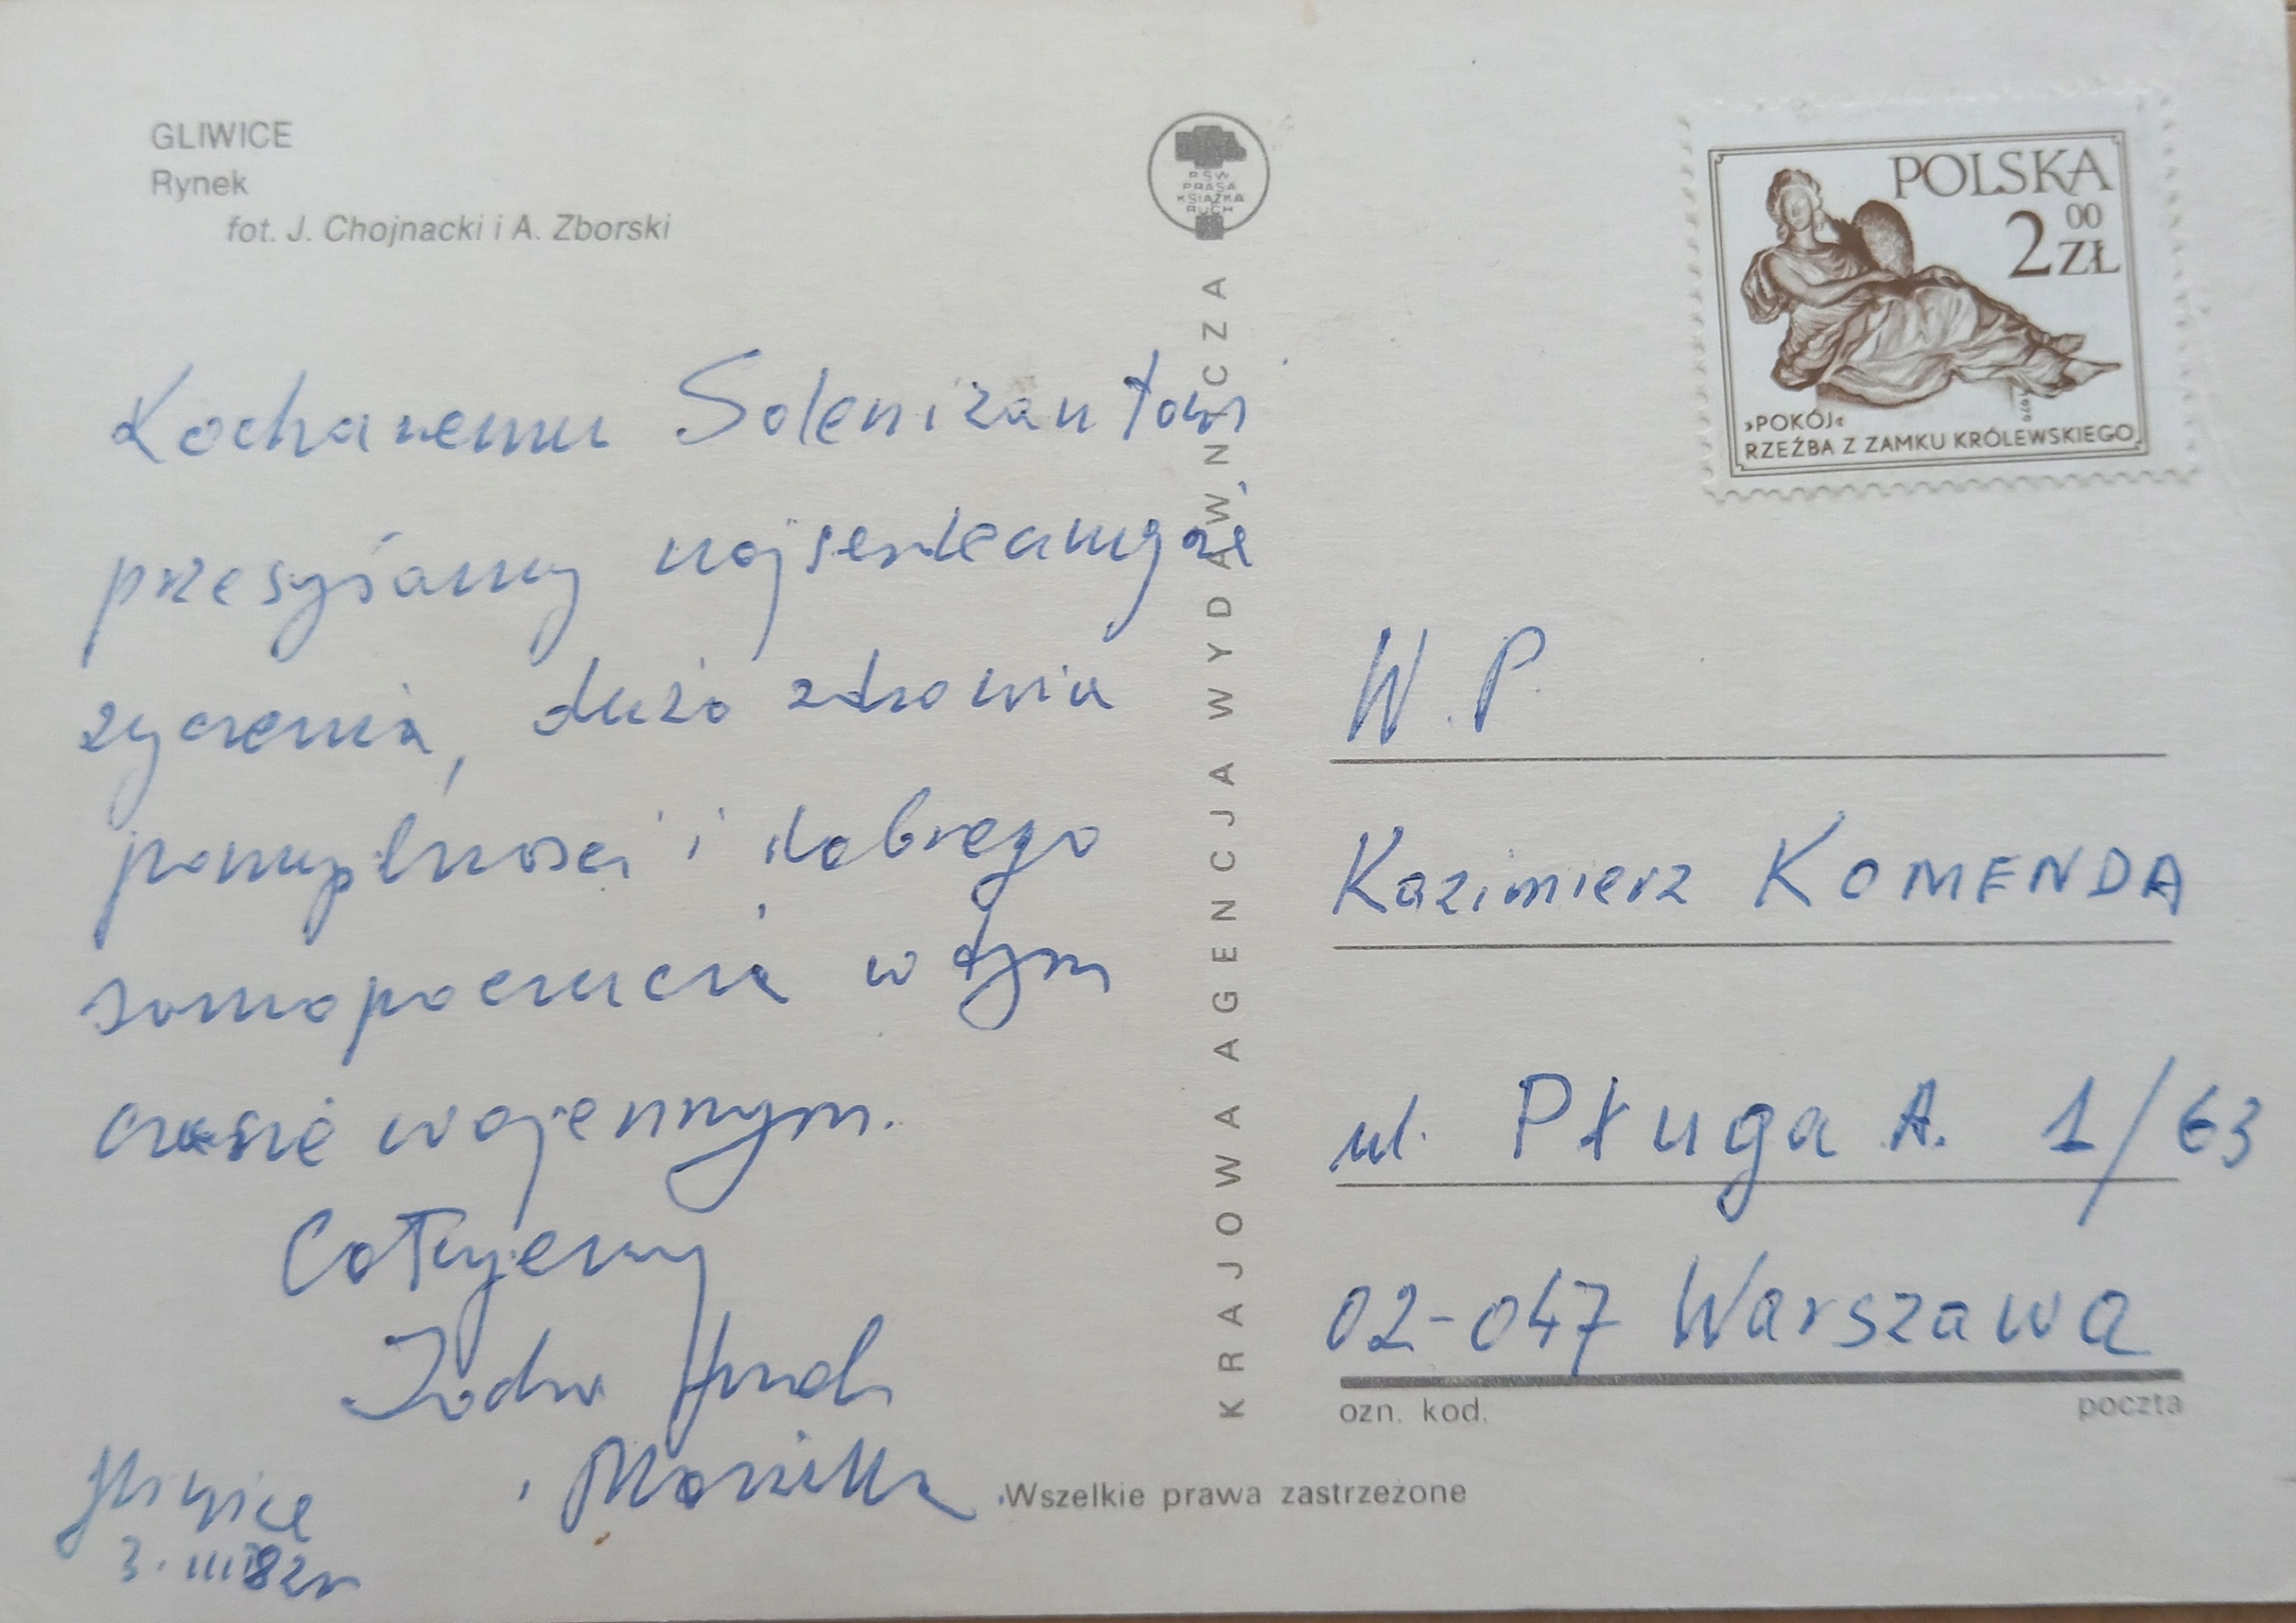 GLIWICE
Rynek
fot. J. Chojnacki i A. Zborski
Kochanemu Solenizantowi
przesyłamy najserdeczniejsze
życzenia, dużo zdrowia
pomyślności i dobrego
samopoczucia w tym
czasie wojennym.
Całujemy
i Monika
Gliwice
3.III 82r
RSW
PRASA
KSIĄŻKA
RUCH
KRAJOWA AGENCJA WYDAWNICZA
POLSKA
2 00 ZŁ
»POKÓJ«
RZEŹBA Z ZAMKU KRÓLEWSKIEGO
W.P.
Kazimierz KOMENDA
ul. Pługa A. 1/63
02-047 Warszawa
ozn. kod. poczta
Wszelkie prawa zastrzeżone